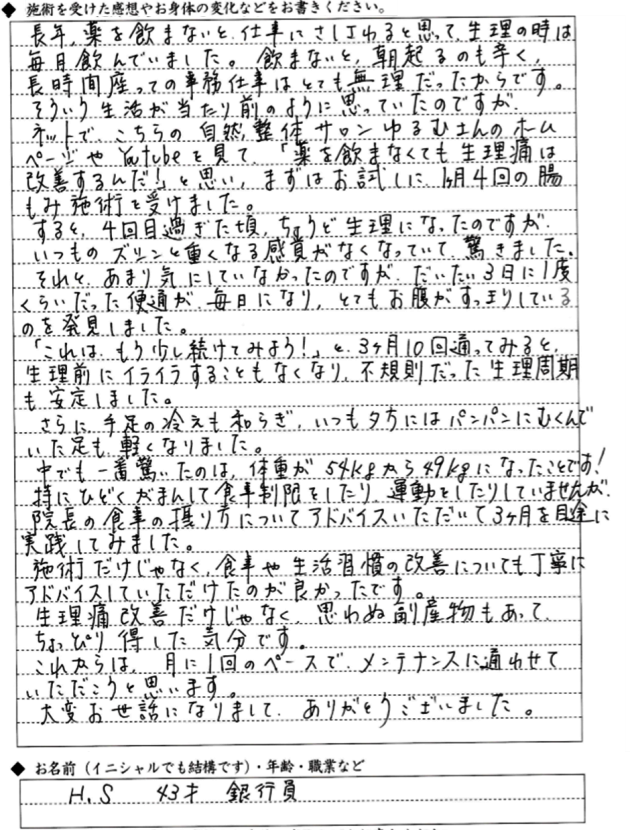 ◆ 施術を受けた感想やお身体の変化などをお書きください。
長年、薬を飲まないと、仕事にさしさわると思って、生理の時は
毎日飲んでいました。飲まないと、朝起るのも辛く、
長時間座っての事務仕事はとても無理だったからです。
そういう生活が当たり前のように思っていたのですが、
ネットで、こちらの自然整体サロンゆるむさんのホーム
ページや Youtubeを見て、「薬を飲まなくても生理痛は
改善するんだ!」と思い、まずはお試しに、1ヶ月4回の腸
もみ施術を受けました。
すると、4回目過ぎた頃、ちょうど生理になったのですが、
いつものズシンと重くなる感覚がなくなっていて、驚きました。
それと、あまり気にしていなかったのですが、だいたい3日に1度
くらいだった便通が、毎日になり、とてもお腹がすっきりしている
のを発見しました。
「これは、もう少し続けてみよう!」と、3ヶ月10回通ってみると、
生理前にイライラすることもなくなり、不規則だった生理周期
も安定しました。
さらに、手足の冷えも和らぎ、いつも夕方にはパンパンにむくんで
いた足も、軽くなりました。
中でも一番驚いたのは、体重が54kgから49kgになったことです!
特にひどくがまんして食事制限をしたり、運動をしたりしていませんが、
院長の食事の摂り方についてアドバイスいただいて3ヶ月を目途に
実践してみました。
施術だけじゃなく、食事や生活習慣の改善についても丁寧に
アドバイスしていただけたのが良かったです。
生理痛改善だけじゃなく、思わぬ副産物もあって、
ちょっぴり得した気分です。
これからは、月に1回のペースで、メンテナンスに通わせて
いただこうと思います。
大変お世話になりまして、ありがとうございました。
◆ お名前(イニシャルでも結構です)・年齢・職業など
H.S 43才 銀行員